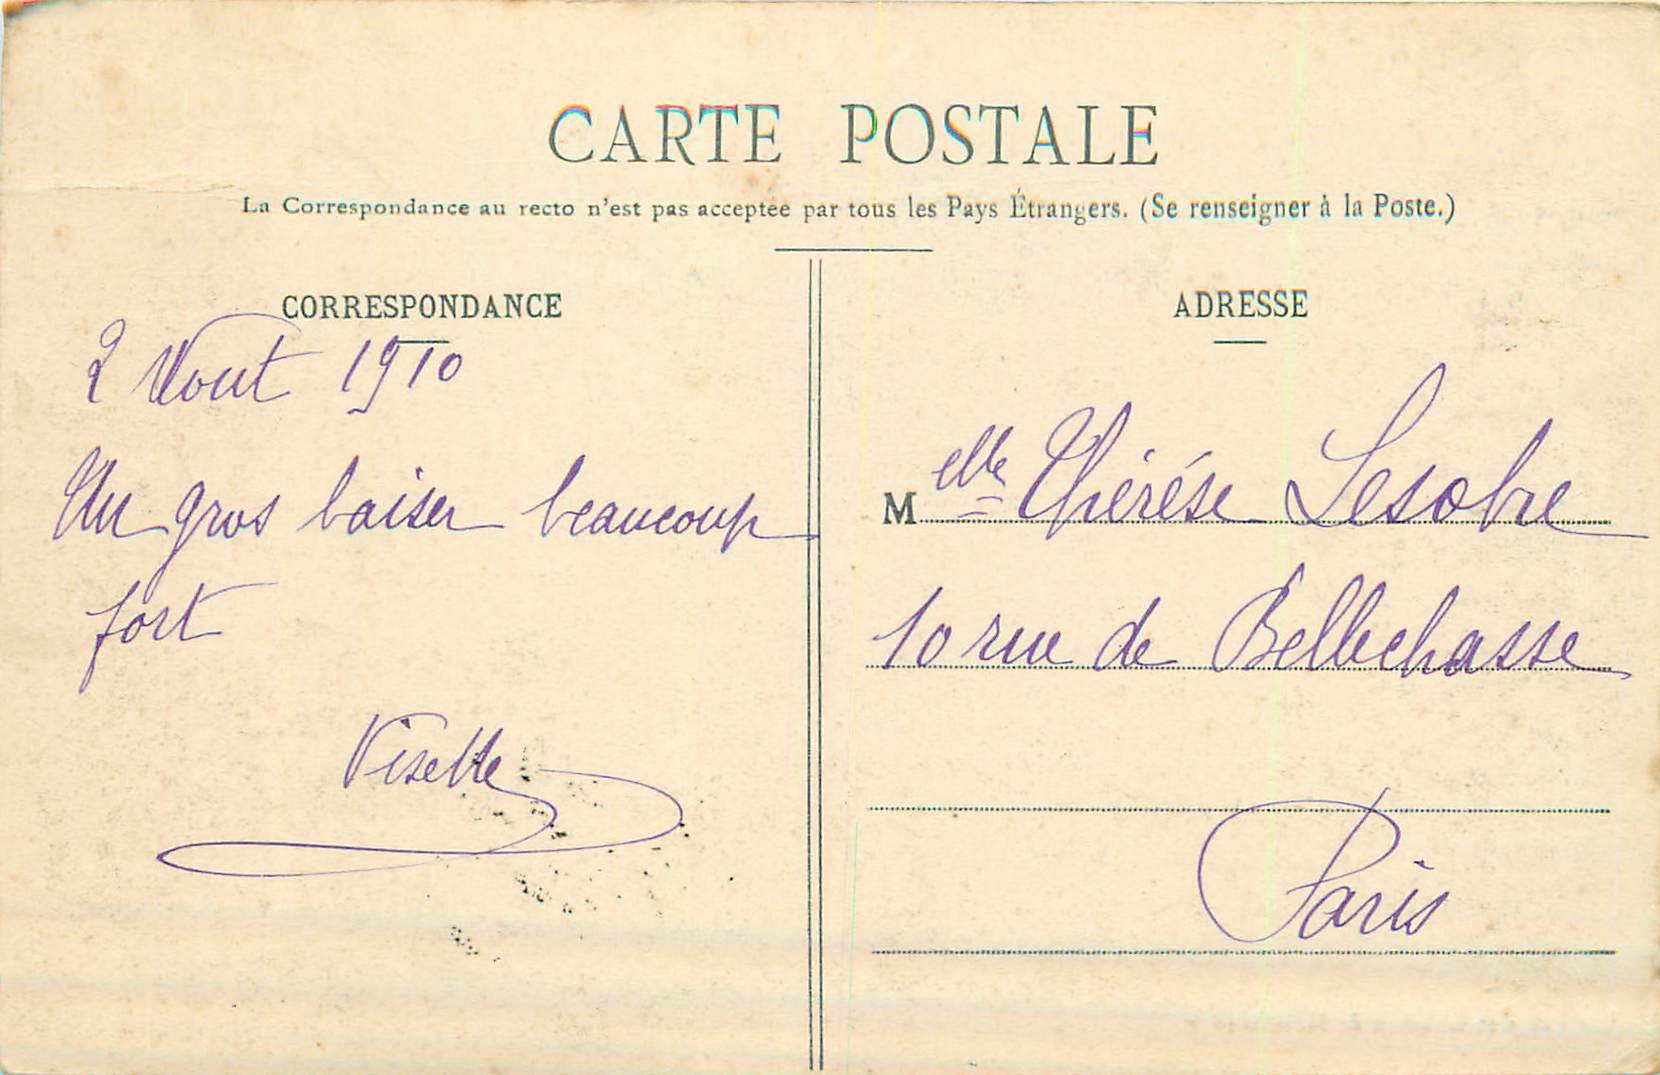 CARTE POSTALE
La Correspondance au recto n'est pas acceptée par tous les Pays Étrangers. (Se renseigner à la Poste.)
CORRESPONDANCE
2 Aout 1910
Un gros baiser beaucoup
fort
Visette
ADRESSE
Melle Thérèse Lesobre
10 rue de Bellechasse
Paris